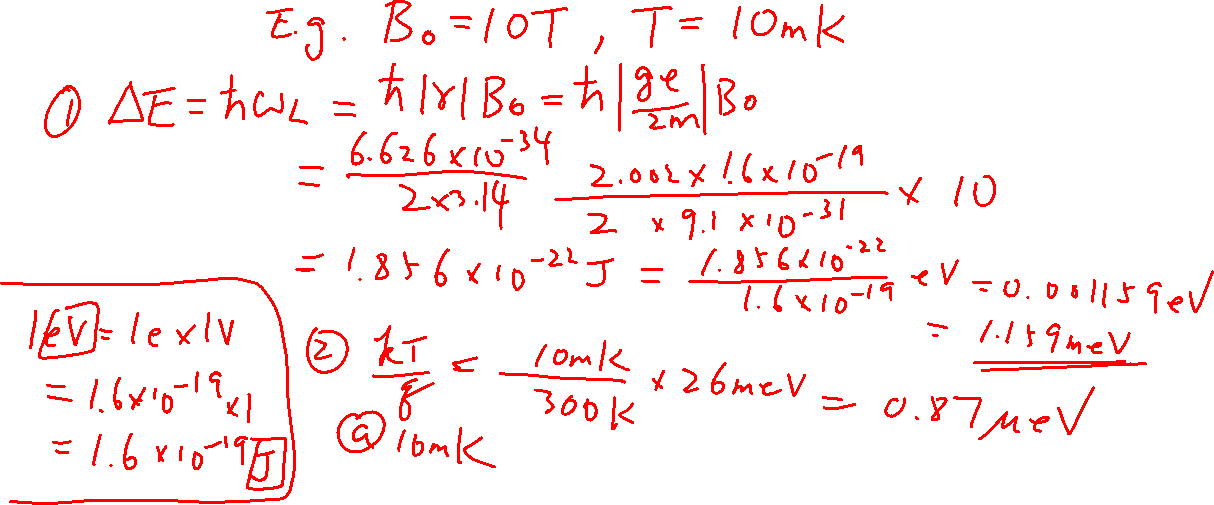 E.g. B₀ = 10T, T = 10mK
① ΔE = ħω_L = ħ|γ|B₀ = ħ|ge/2m|B₀
= 6.626×10⁻³⁴/2×3.14 2.002×1.6×10⁻¹⁹/2×9.1×10⁻³¹ × 10
= 1.856×10⁻²² J = 1.856×10⁻²²/1.6×10⁻¹⁹ eV = 0.001159eV
= 1.159meV
1eV = 1e×1V
= 1.6×10⁻¹⁹×1
= 1.6×10⁻¹⁹J
② kT/q = 10mK/300K × 26meV = 0.87μeV
@10mK